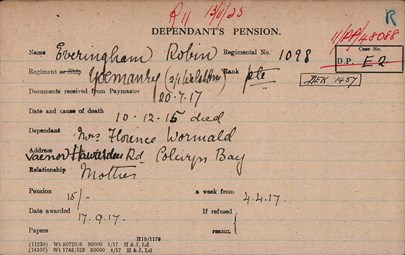 R11 13/11/25
R
DEPENDANT'S PENSION.
11/DP/48088
Name Everingham Robin Regimental No. 1098
Case No.
D.P. E 2
Regiment or Ship Yeomanry (2/1 Welsh Hrs) Rank pte
DEK 1457
Documents received from Paymaster 20.7.17
Date and cause of death 10.12.15 died
Dependant Mrs Florence Wormald
Address Vaenor Hawarden Rd Colwyn Bay
Relationship Mother
Pension 15/- a week from 4.4.17.
Date awarded 17.9.17. If refused
Papers reason
H15/1179
(11236) Wt 50720/6 50000 1/17 H & J, Ld
(14307) Wt 1748/128 50000 4/17 H & J, Ld